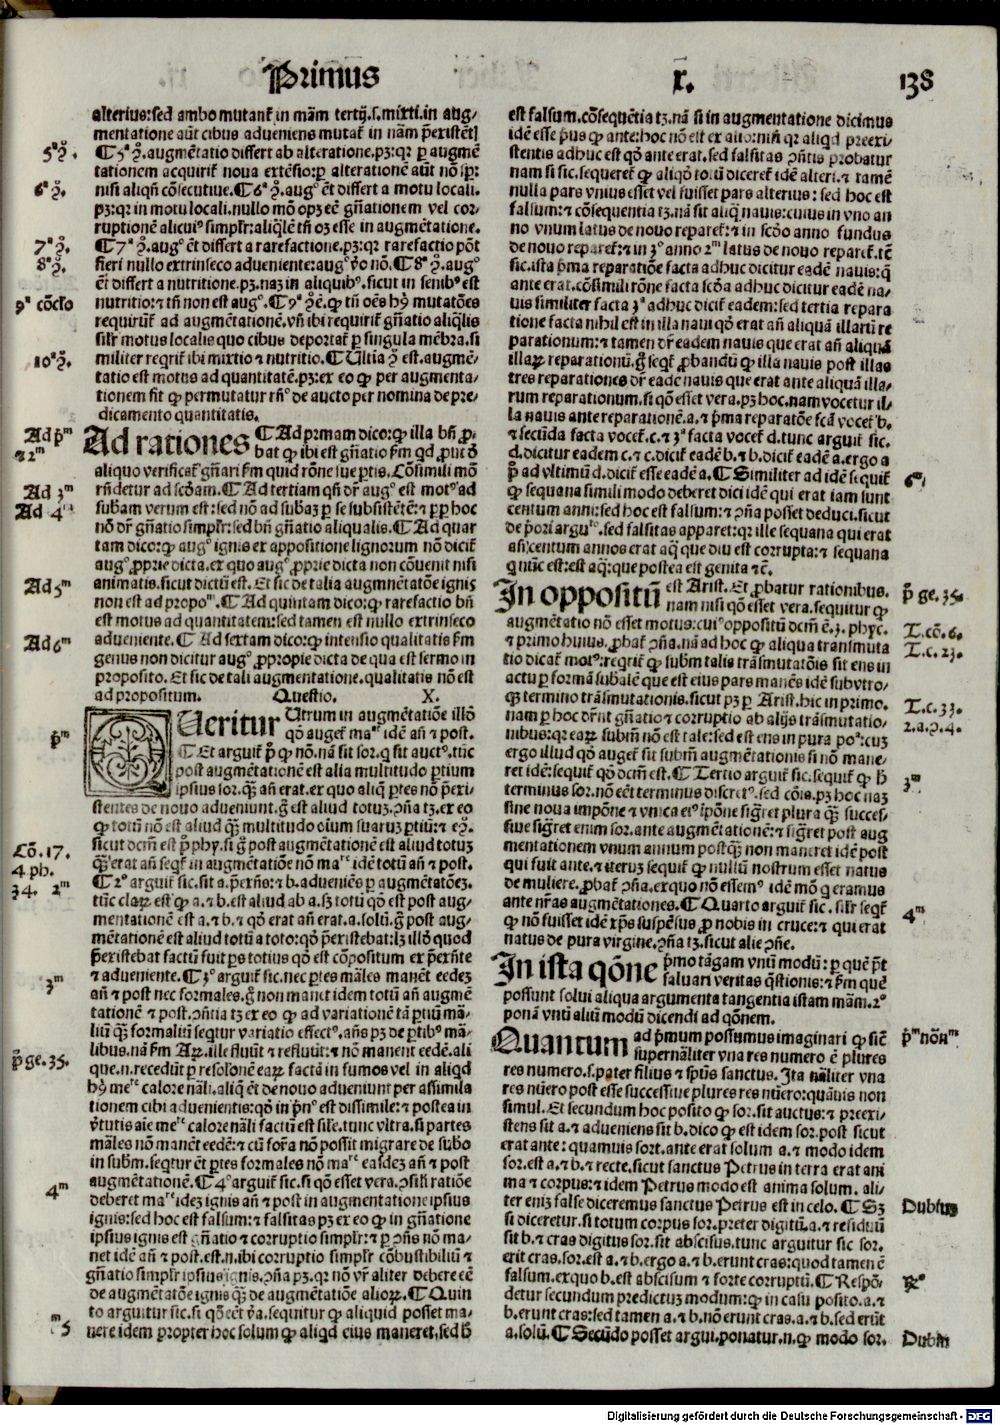 Primus
x.
138
alterius: sed ambo mutant̄ in mām tertij. s. mixti. in aug⸗
mentatione aūt cibus adueniens mutat̄ in nām p̄existēt
5ª ꝯ̊.
¶ 5ª ꝯ̊. augmētatio differt ab alteratione. pꝫ: qr ꝑ augmē
tationem acquirit̄ noua extēsio: ꝑ alterationē aūt nō ip̄:
6ª ꝯ̊.
nisi aliqn̄ cōsecutiue. ¶ 6ª ꝯ̊. augº ēt differt a motu locali.
pꝫ: qr in motu locali. nullo mō opꝫ eē gn̄ationem vel cor⸗
ruptionē alicuiº simplr̄: aliqlē tn̄ oꝫ esse in augmētatione.
7ª ꝯ̊.
¶ 7ª ꝯ̊. augº ēt differt a rarefactione. pꝫ: qr rarefactio pōt
8ª ꝯ̊.
fieri nullo extrinseco adueniente: augº v̊o nō. ¶ 8ª ꝯ̊. augº
ēt differt a nutritione. pꝫ. naꝫ in aliquibº. sicut in senibº est
9ª cōclo
nutritio: ⁊ tn̄ non est augº. ¶ 9ª ꝯ̊ ē. ꝙ tn̄ oēs hꝰ mutatōes
requirūt̄ ad augmētationē. vn̄ ibi requirit̄ gn̄atio aliqlis
silr̄ motus localis quo cibus deportat̄ ꝑ singula mēbra. si
10ª ꝯ̊.
militer reqrit̄ ibi mixtio ⁊ nutritio. ¶ Ultīa ꝯ̊ est. augmē⸗
tatio est motus ad quantitatē. pꝫ: ex eo ꝙ per augmenta⸗
tionem fit ꝙ permutatur rn̄º de aucto per nomina de pre⸗
dicamento quantitatis.
Ad p̄ᵐ ⁊ 2ᵐ
Ad rationes ¶ Ad primam dico: ꝙ illa bn̄ ꝓ⸗
bat ꝙ ibi est gn̄atio ẜm qd̄ ꝓut ꝺ̄
aliquo verificat̄ gn̄ari ẜm quid rōne sue ꝑtis. Cōsimili mō
Ad 3ᵐ
rn̄detur ad scdam. ¶ Ad tertiam qn̄ dr̄ augº est motº ad
Ad 4ᵐ
subam verum est: sed nō ad subaꝫ ꝑ se subsistētē: ⁊ ꝓꝑ hoc
nō dr̄ gn̄atio simplr̄: sed bn̄ gn̄atio aliqualis. ¶ Ad quar
tam dico: ꝙ augº ignis ex appositione lignorum nō dicit̄
augº ꝓprie dicta. ex quo augº ꝓprie dicta non cōuenit nisi
animatis. sicut dictū est. Et sic de talia augmnētatōe ignis
Ad 5ᵐ
non est ad propoᵐ. ¶ Ad quintam dico: ꝙ rarefactio bn̄
est motus ad quantitatem: sed tamen est nullo extrinseco
Ad 6ᵐ
adueniente. ¶ Ad sextam dico: ꝙ intensio qualitatis ẜm
genus non dicitur augº ꝓpropie dicta de qua est sermo in
proposito. Et sic de tali augmentatione. qualitatis nō est
ad propositum. Questio. X.
Queritur Utrum in augmētatiōe illō
p̄ᵐ
qō auget̄ maʳᵉ idē an̄ ⁊ post.
¶ Et arguit̄ p̄ ꝙ nō. nā sit sor. q̄ sit auctº. tūc
post augmētationē est alia multitudo ꝑtium
ipsius sor. qꝫ̄ an̄ erat. ex quo aliq̄ ꝑtes nō p̄exi⸗
stentes de nouo adueniunt. g̊ est aliud totuꝫ. ꝯn̄a tꝫ. ex eo
ꝙ totū nō est aliud qꝫ̄ multitudo oīum suaruꝫ ꝑtiū: ⁊ eꝯ̊.
Cō. 17.
sicut dcm̄ est p̄ phy. si g̊ post augmētationē est aliud totuꝫ
4 ph.
qꝫ̄ erat an̄ seqt̄ in augmētatiōe nō maʳᵉ idē totū an̄ ⁊ post.
34. 2ᵐ
¶ 2º arguit̄ sic. sit a. p̄exn̄s: ⁊ b. adueniēs ꝑ augmētatōeꝫ.
tūc claꝝ est ꝙ a. ⁊ b. est aliud ab a. sꝫ totū qō est post aug⸗
mentationē est a. ⁊ b. ⁊ qō erat an̄ erat. a. solū. g̊ post aug⸗
mētationē est aliud totū a toto: qō p̄existebat: lꝫ illō quod
p̄existebat factū fuit ꝑs totius qō est cōpositum ex p̄exn̄te
3ᵐ
⁊ adueniente. ¶ 3º arguit̄ sic. nec ꝑtes māles manēt eedeꝫ
an̄ ⁊ post nec formales. g̊ non manet idem totū an̄ augmē
tationē ⁊ post. ꝯn̄tia tꝫ ex eo ꝙ ad variationē tā ꝑtiū mā⸗
liū qꝫ̄ formaliū seqtur variatio effectº. an̄s pꝫ de ꝑtibº mā⸗
p̄ ge. 35.
libus. nā ẜm Aꝝ. ille fluūt ⁊ refluūt: ⁊ nō manent eedē. ali
que. n. recedūt ꝑ resolonē eaꝝ factā in fumos vel in aliqd
hꝰ meʳᵉ calore nāli. aliq̄ ēt de nouo adueniunt per assimila
tionem cibi aduenientis: qō in p̄nº est dissimile: ⁊ postea in
v̄tutis aie meʳᵉ calore nāli factū est sile. tunc vltra. si partes
māles nō manēt eedē: ⁊ cū for̄a nō possit migrare de subō
in subm̄. seqtur ēt ꝑtes formales nō maʳᵉ easdeꝫ an̄ ⁊ post
4ᵐ
augmētationē. ¶ 4º arguit̄ sic. si qō esset vera. ꝯsili ratiōe
deberet maʳᵉ ideꝫ ignis an̄ ⁊ post in augmentatione ipsius
ignis: sed hoc est falsum: ⁊ falsitas pꝫ ex eo ꝙ in gn̄atione
ipsius ignis est gn̄atio ⁊ corruptio simplr̄: ⁊ ꝑ ꝯn̄s nō ma⸗
net idē an̄ ⁊ post. est. n. ibi corruptio simplr̄ cōbustibiliū ⁊
gn̄atio simplr̄ ipsius ignis. ꝯn̄a pꝫ. qr nō vr̄ aliter debere eē
de augmētatōe ignis qꝫ̄ de augmētatiōe alioꝝ. ¶ Quin
ᵐ5
to arguitur sic. si qō eēt v̄a. sequitur ꝙ aliquid posset ma⸗
nere idem propter hoc solum ꝙ aliqd eius maneret. sed h̄
est falsum. cōseqūētia tꝫ. nā si in augmentatione dicimus
idē esse p̄us ꝙ ante: hoc nō est ex alio: nisi qr aliqd preexi⸗
stentis adhuc est qō ante erat. sed falsitas ꝯn̄tis probatur
nam si sic. sequeret̄ ꝙ aliqō totū diceret̄ idē alteri. ⁊ tamē
nulla pars vnius esset vel fuisset pars alterius: sed hoc est
falsum: ⁊ cōsequentia tꝫ. nā sit aliq̄ nauis: cuius in vno an
no vnum latus de nouo reparet̄: ⁊ in scdo anno fundus
de nouo reparet̄: ⁊ in 3º anno 2ᵐ latus de nouo reparet̄. tc̄
sic. ista p̄ma reparatiōe facta adhuc dicitur eadē nauis: q̄
ante erat. cōsimili rōne facta scda adhuc dicitur eadē na⸗
uis similiter facta 3ª adhuc dicit̄ eadem: sed tertia repara
tione facta nihil est in illa naui qō erat an̄ aliquā illarū re
parationum: ⁊ tamen dr̄ eadem nauis que erat an̄ aliquā
illaꝝ reparationū. g̊ seqt̄ ꝓbandū ꝙ illa nauis post illas
tres reparationes dr̄ eadē nauis que erat ante aliquā illa⸗
rum reparationum. si qō esset vera. pꝫ hoc. nam vocetur il⸗
la nauis ante reparationē. a. ⁊ p̄ma reparatōe fcā vocet̄ b.
⁊ secūda facta vocet̄. c. ⁊ 3ª facta vocet̄ d. tunc arguit̄ sic.
d. dicitur eadem c. ⁊ c. dicit̄ eadē b. ⁊ b. dicit̄ eadē a. ergo a
6ᵐ
p̄ ad vltimū d. dicit̄ esse eadē a. ¶ Similiter ad idē seqt̄
ꝙ sequana simili modo deberet dici idē qui erat iam sunt
centum anni: sed hoc est falsum: ⁊ ꝯn̄a posset deduci. sicut
de p̄ori arguᵗᵒ. sed falsitas apparet: qr ille sequana qui erat
an̄ centum annos erat aq̄ que diu est corrupta: ⁊ sequana
q̄ nūc est: est aq̄: que postea est genita ⁊c̄.
p̄ ge. 35.
In oppositū est Arist. Et ꝓbatur rationibus.
nam nisi qō esset vera. sequitur ꝙ
T. cō. 6.
augmētatio nō esset motus: cuiº oppositū dcm̄ ē. 3. phyc.
T. c. 23.
⁊ primo huius. ꝓbat̄ ꝯn̄a. nā ad hoc ꝙ aliqua transmuta
tio dicat̄ motº: reqrit̄ ꝙ subm̄ talis trāsmutatōis sit ens in
actu ꝑ formā subalē que est eius pars manēs idē sub vtro⸗
T. c. 33.
qꝫ termino trāsmutationis. sicut pꝫ ꝑ Arist. hic in primo.
2. a. ꝯ. 4.
nam ꝑ hoc dr̄nt gn̄atio ⁊ corruptio ab alijs trāsmutatio⸗
nibus: qr eaꝝ subm̄ nō est tale: sed est ens in pura poª: cuꝫ
ergo illud qō auget̄ sit subm̄ augmētationis si nō mane⸗
3ᵐ
ret idē: sequit̄ qō dcm̄ est. ¶ Tertio arguit̄ sic. sequit̄ ꝙ h̄
terminus sor. nō eēt terminus discretº. sed cōis. pꝫ hoc naꝫ
sine noua impōne ⁊ vnica eiº īpōne sig̃ret plura qꝫ̄ succes⸗
siue sig̃ret enim sor. ante augmētationē: ⁊ sig̃ret post aug
mentationem vnum annum postqꝫ̄ non maneret idē post
qui fuit ante. ⁊ iteruꝫ sequit̄ ꝙ nullū nostrum esset natus
de muliere. ꝓbat̄ ꝯn̄a. ex quo nō essemº idē mō q̄ eramus
4ᵐ
ante nr̄as augmētationes. ¶ Quarto arguit̄ sic. silr̄ seqt̄
ꝙ nō fuisset idē xp̄s suspēsus ꝓ nobis in cruce: ⁊ qui erat
natus de pura virgine. ꝯn̄a tꝫ. sicut alie ꝯn̄e.
In ista qōne p̄mo tāgam vnū modū: ꝑ quē p̄t
saluari veritas qōnis: ⁊ ꝑ quē
possunt solui aliqua argumenta tangentia istam mām. 2º
ponā vnū aliū modū dicendi ad qōnem.
p̄ᵐ nōnᵐ
Quantum ad p̄mum possumus imaginari ꝙ sicē
supernāliter vna res numero ē plures
res numero. s. pater filius ⁊ sp̄us sanctus. Ita nāliter vna
res nūero post esse successiue plures res nūero: quāuis non
simul. Et secundum hoc posito ꝙ sor. sit auctus: ⁊ preexi⸗
stens sit a. ⁊ adueniens sit b. dico ꝙ est idem sor. post sicut
erat ante: quamuis sort. ante erat solum a. ⁊ modo idem
sor. est a. ⁊ b. ⁊ recte. sicut sanctus Petrus in terra erat ani
ma ⁊ corpus: ⁊ idem Petrus modo est anima solum. ali⸗
Dubius
ter eniꝫ false diceremus sanctus Petrus est in celo. ¶ Sꝫ
si diceretur. si totum corpus sor. preter digitū. a. ⁊ residuū
sit b. ⁊ cras digitus sor. sit abscisus. tunc arguitur sic sor.
erit cras. sor. est a. ⁊ b. ergo a. ⁊ b. erunt cras: quod tamen ē
℞º
falsum. ex quo b. est abscisum ⁊ forte corruptū. ¶ Respō⸗
detur secundum predictuꝫ modum: ꝙ in casu posito. a. ⁊
b. erunt cras: sed tamen a. ⁊ b. nō erunt cras. a. ⁊ b. sed erūt
Dubiū
a. solū. ¶ Secūdo posset argui. ponatur. n. ꝙ modo sor.
Digitalisierung gefördert durch die Deutsche Forschungsgemeinschaft - DFG